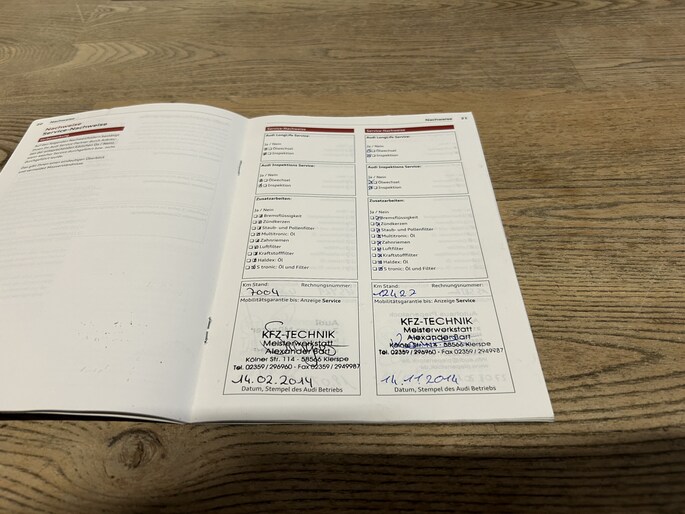 Nachweise
Nachweise
Service-Nachweise
Nachweise
Service-Nachweise
Audi LongLife Service:
Ja / Nein
Ölwechsel
Inspektion
Audi Inspektions Service:
Ja / Nein
Ölwechsel
Inspektion
Zusatzarbeiten:
Ja / Nein
Bremsflüssigkeit
Zündkerzen
Staub- und Pollenfilter
Multitronic: Öl
Zahnriemen
Luftfilter
Kraftstofffilter
Haldex: Öl
S tronic: Öl und Filter
Km Stand: Rechnungsnummer:
7004
Mobilitätsgarantie bis: Anzeige Service
KFZ-TECHNIK
Meisterwerkstatt
Alexander Bart
Kölner Str. 114 - 58566 Kierspe
Tel. 02359 / 296960 - Fax 02359 / 2949987
14.02.2014
Datum, Stempel des Audi Betriebs
Service-Nachweise
Audi LongLife Service:
Ja / Nein
Ölwechsel
Inspektion
Audi Inspektions Service:
Ja / Nein
Ölwechsel
Inspektion
Zusatzarbeiten:
Ja / Nein
Bremsflüssigkeit
Zündkerzen
Staub- und Pollenfilter
Multitronic: Öl
Zahnriemen
Luftfilter
Kraftstofffilter
Haldex: Öl
S tronic: Öl und Filter
Km Stand: Rechnungsnummer:
12427
Mobilitätsgarantie bis: Anzeige Service
KFZ-TECHNIK
Meisterwerkstatt
Alexander Bart
Kölner Str. 114 - 58566 Kierspe
Tel. 02359 / 296960 - Fax 02359 / 2949987
14.11.2014
Datum, Stempel des Audi Betriebs